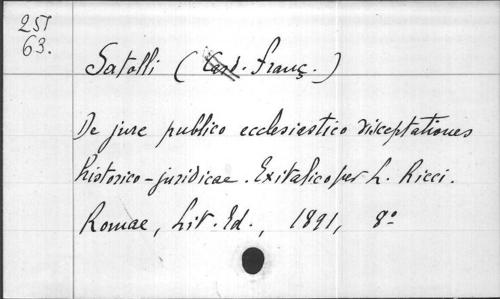 251
63.
Satolli (Card. Franç.)
De jure publico ecclesiastico disceptationes
historico-juridicae. Ex italico per L. Ricci.
Romae, Lit. Ed., 1891, 8º